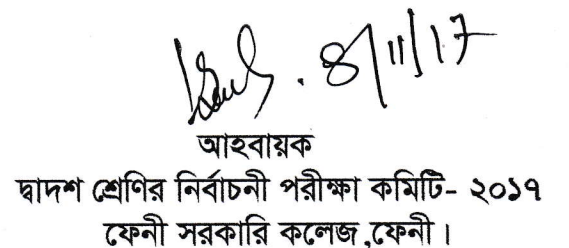 8/11/17
আহবায়ক
দ্বাদশ শ্রেণির নির্বাচনী পরীক্ষা কমিটি- ২০১৭
ফেনী সরকারি কলেজ,ফেনী।